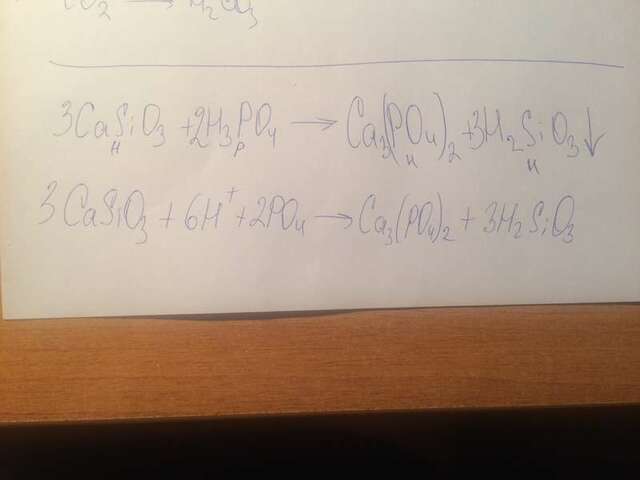 CO₃ → H₂CO₃
3CaSiO₃ + 2H₃PO₄ → Ca₃(PO₄)₂ + 3H₂SiO₃↓
н р н н
3CaSiO₃ + 6H⁺ + 2PO₄ → Ca₃(PO₄)₂ + 3H₂SiO₃